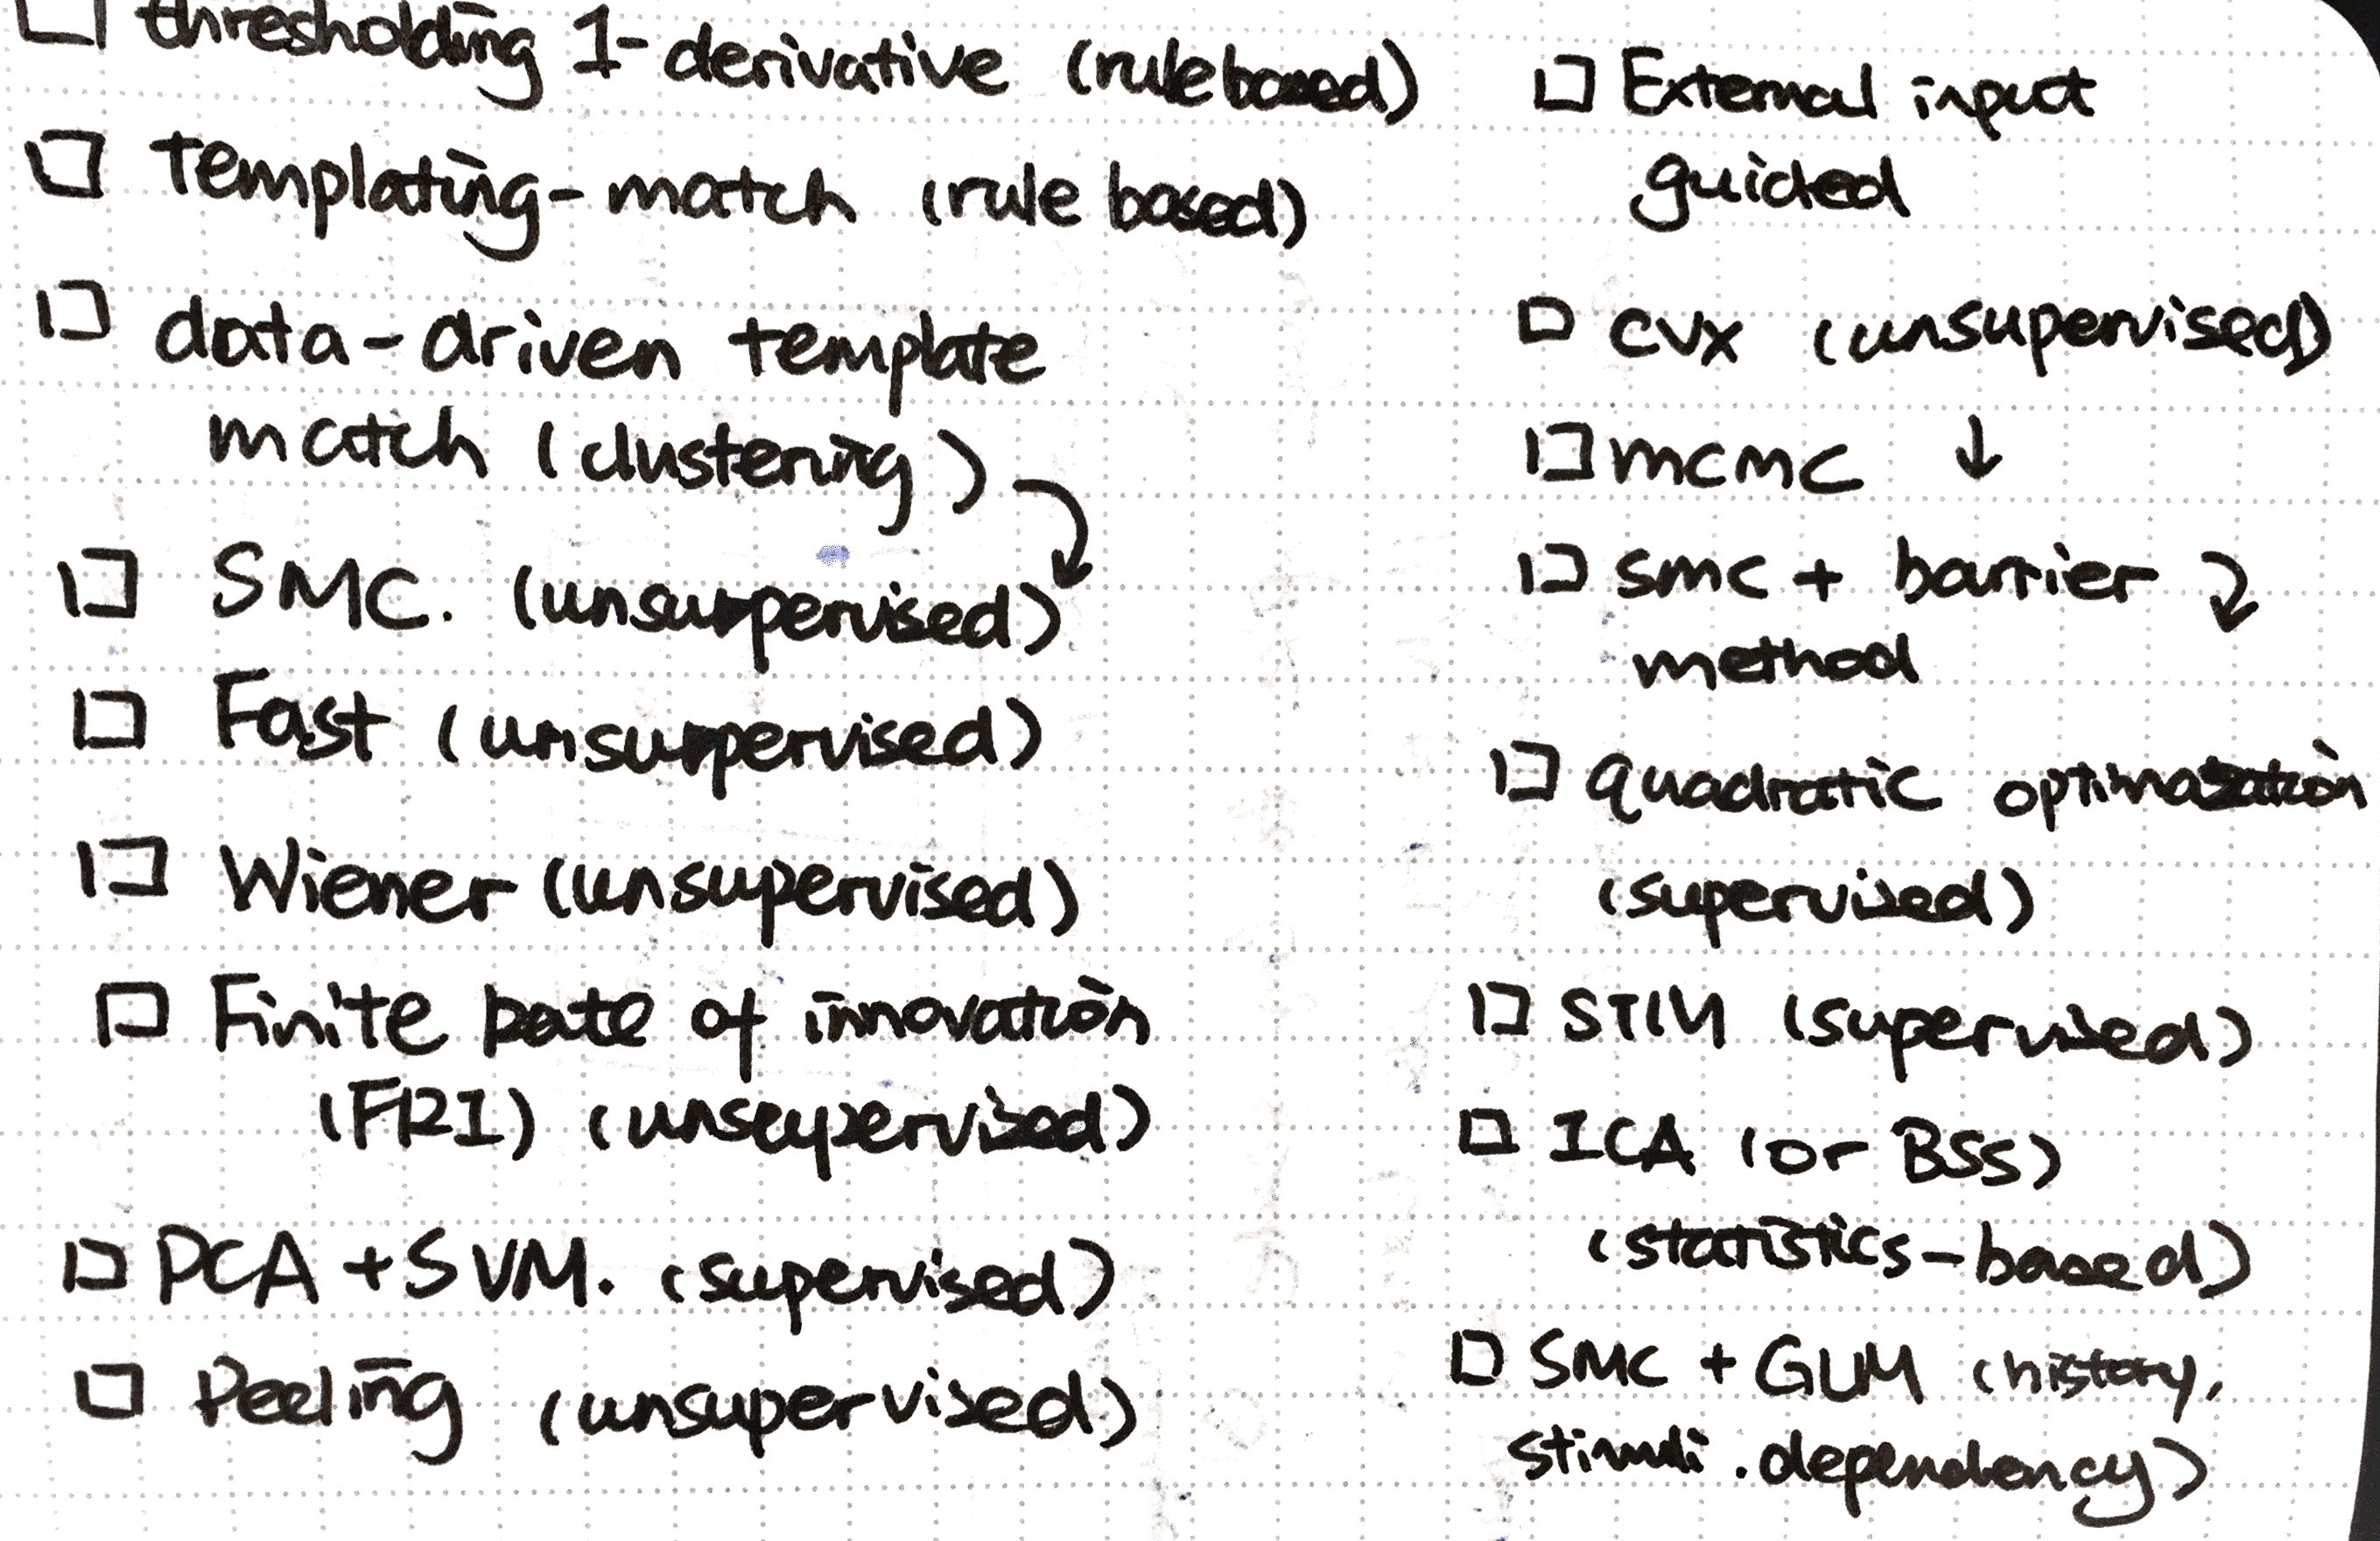 thresholding 1-derivative (rule based)
templating-match (rule based)
data-driven template
match (clustering)
SMC. (unsupervised)
Fast (unsupervised)
Wiener (unsupervised)
Finite rate of innovation
(FRI) (unsupervised)
PCA + SVM. (supervised)
Peeling (unsupervised)
External input
guided
CVX (unsupervised)
MCMC ↓
SMC + barrier
method
quadratic optimazation
(supervised)
STM (supervised)
ICA (or BSS)
(statistics-based)
SMC + GLM (history,
stimuli. dependency)